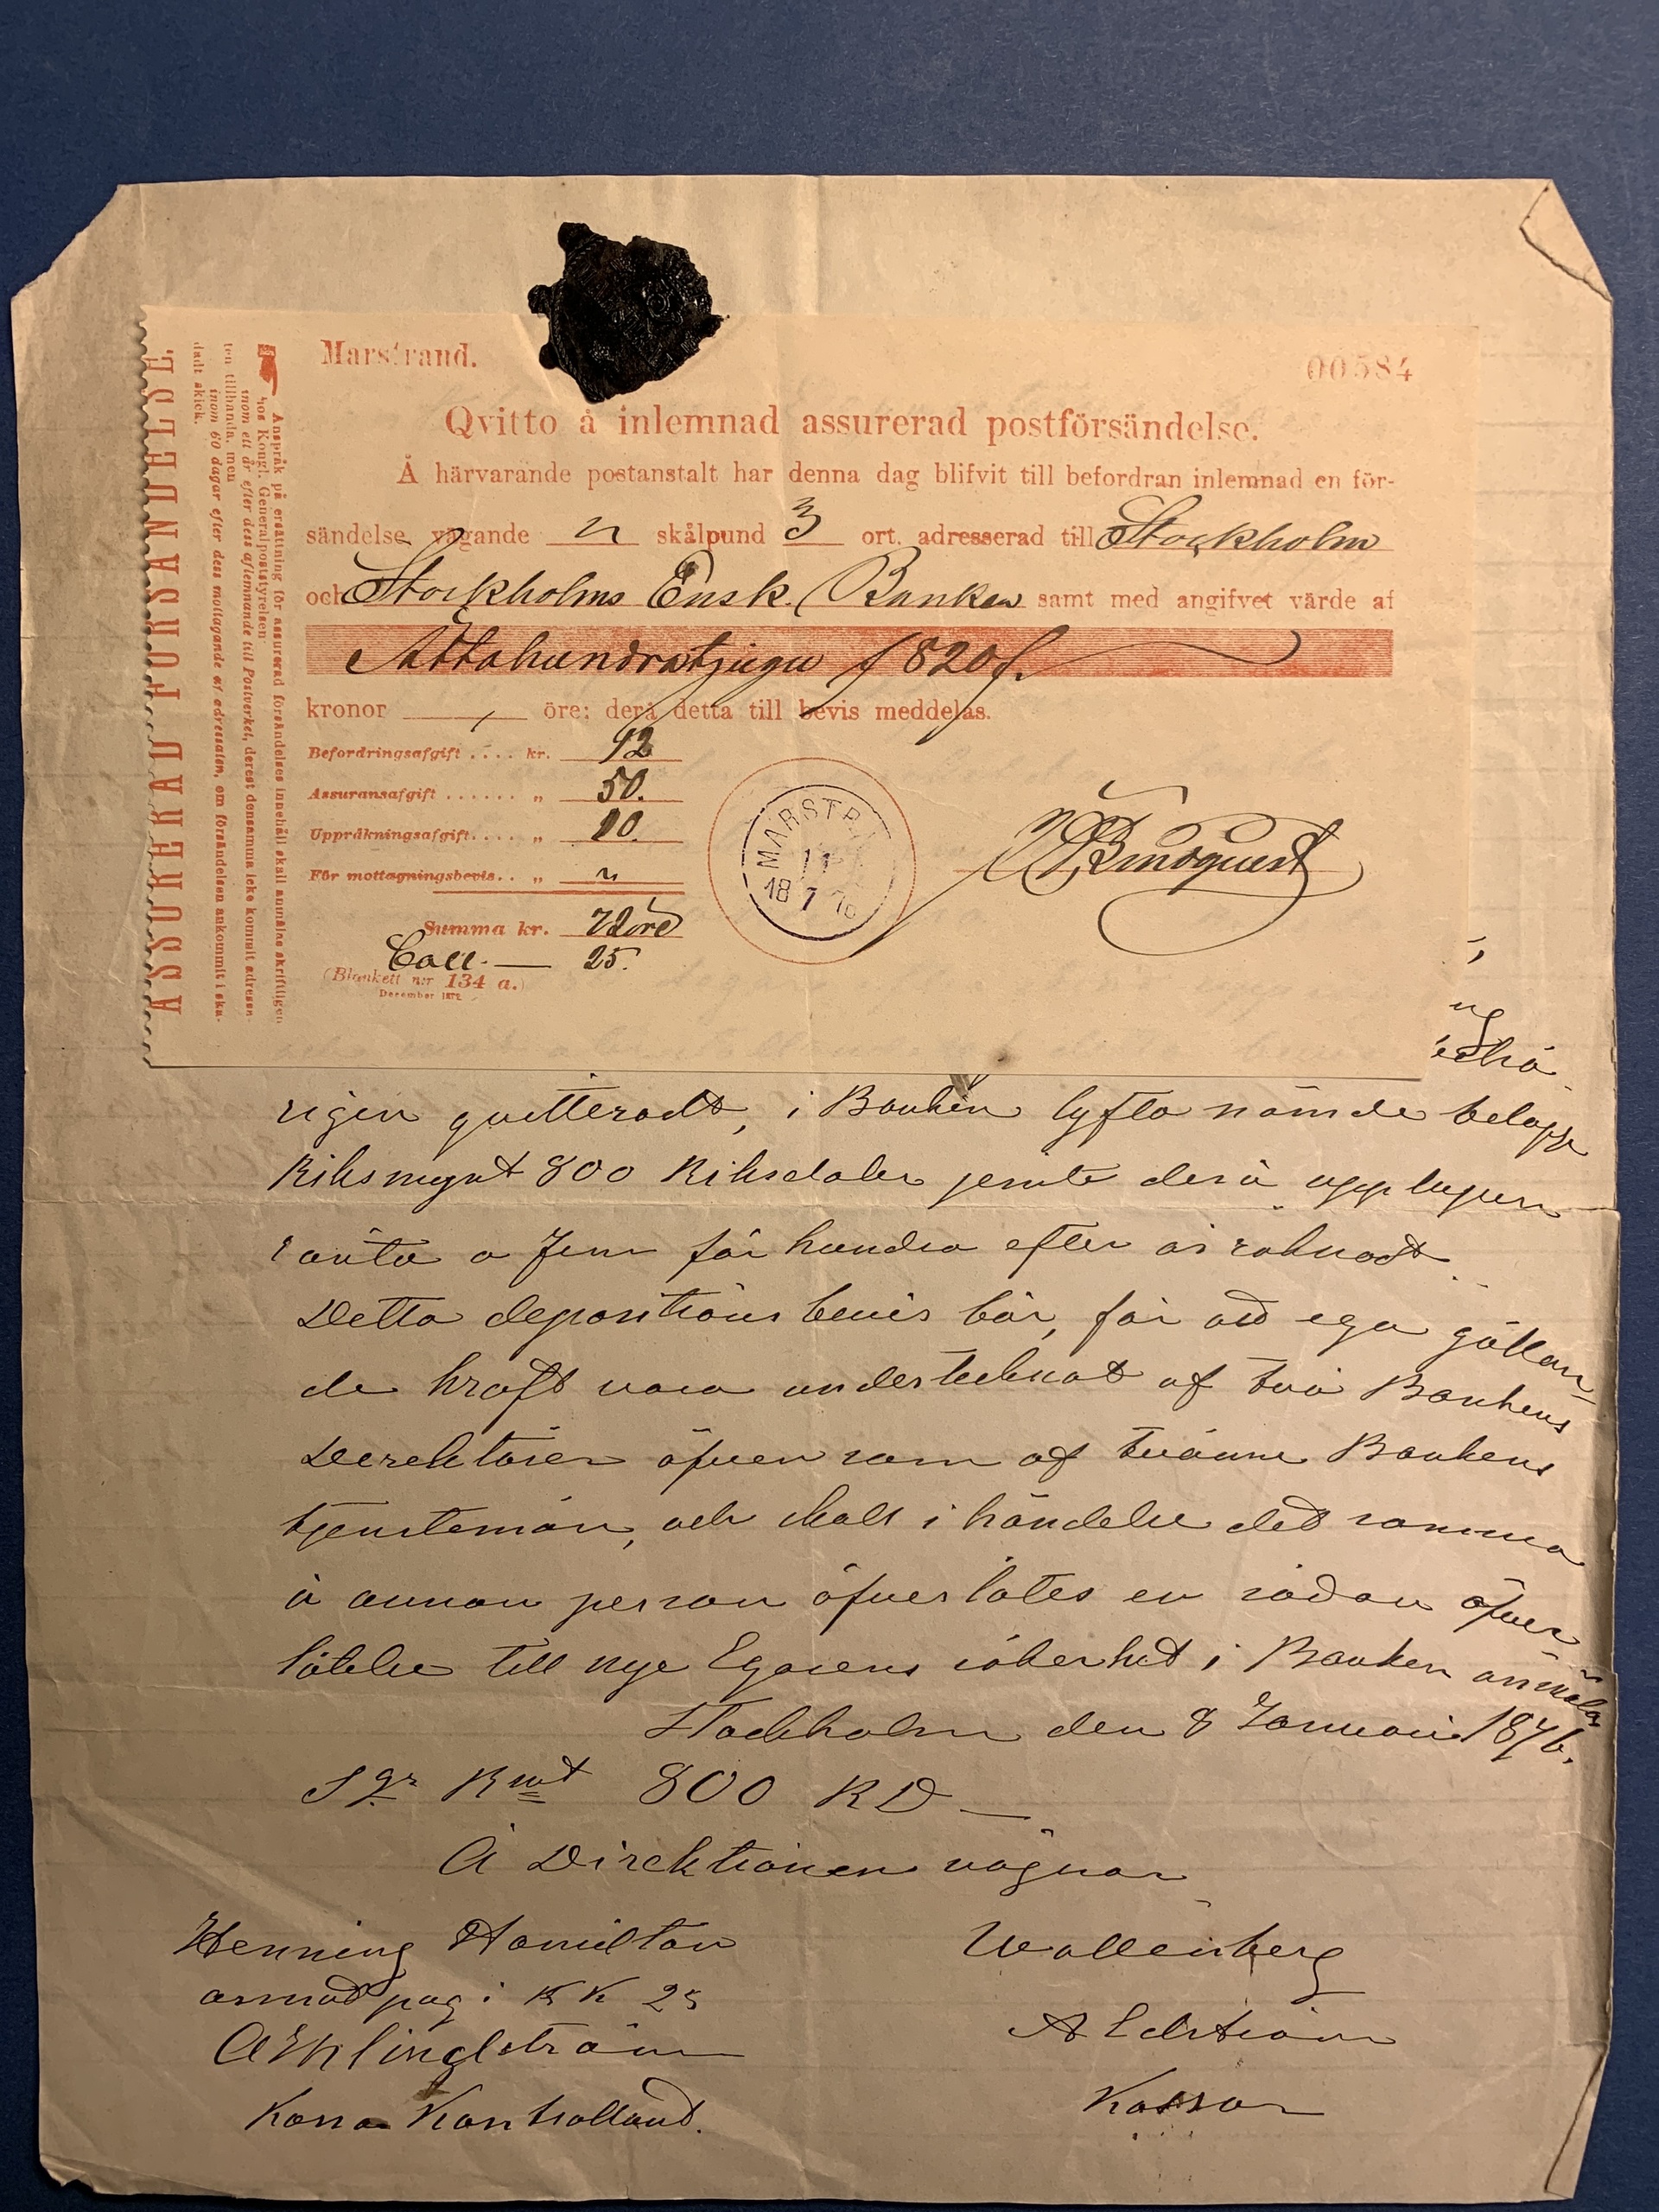 Marstrand.
00584
Qvitto å inlemnad assurerad postförsändelse.
Å härvarande postanstalt har denna dag blifvit till befordran inlemnad en för-
sändelse vägande " skålpund 3 ort. adresserad till Stockholm
och Stockholms Ensk. Banken samt med angifvet värde af
Åttahundratjugu /820/.
kronor öre; derå detta till bevis meddelas.
Befordringsafgift .... kr. 12
Assuransafgift ...... „ 50.
Uppräkningsafgift.... „ 10.
För mottagningsbevis.. „ "
Summa kr. 72 öre
25.
(Blankett n:r 134 a.)
December 1872
MARSTRA
11
18 1 76
ASSURERAD FÖRSÄNDELSE
Anspråk på ersättning för assurerad försändelses innehåll skall anmälas skriftligen
hos Kongl. Generalpoststyrelsen:
inom ett år efter dess aflemnande till Postverket, derest densamma icke kommit adressa-
ten tillhanda, men
inom 60 dagar efter dess mottagande af adressaten, om försändelsen ankommit i ska-
dadt skick.
rigen quitteradt, i Banken lyfta nämde belopp
Riksmynt 800 Riksdaler jemte derå upplupen
ränta a Fem för hundra efter år räknadt
Detta depositions bevis bör, för att ega gällan-
de kraft vara undertecknat af två Bankens
Direktörer äfven som af tvänne Bankens
tjenstemän, och skall i händelse det samma
å annan person öfverlåtes en sådan öfver-
låtelse till nye Egarens säkerhet i Banken anmälas
Stockholm den 8 Januari 1876.
Sgr Rmt 800 RD —
Å Direktionens vägnar
Henning Hamilton
Wallenberg
pag i KK 25
Kassa Kontrollant.
Kassor